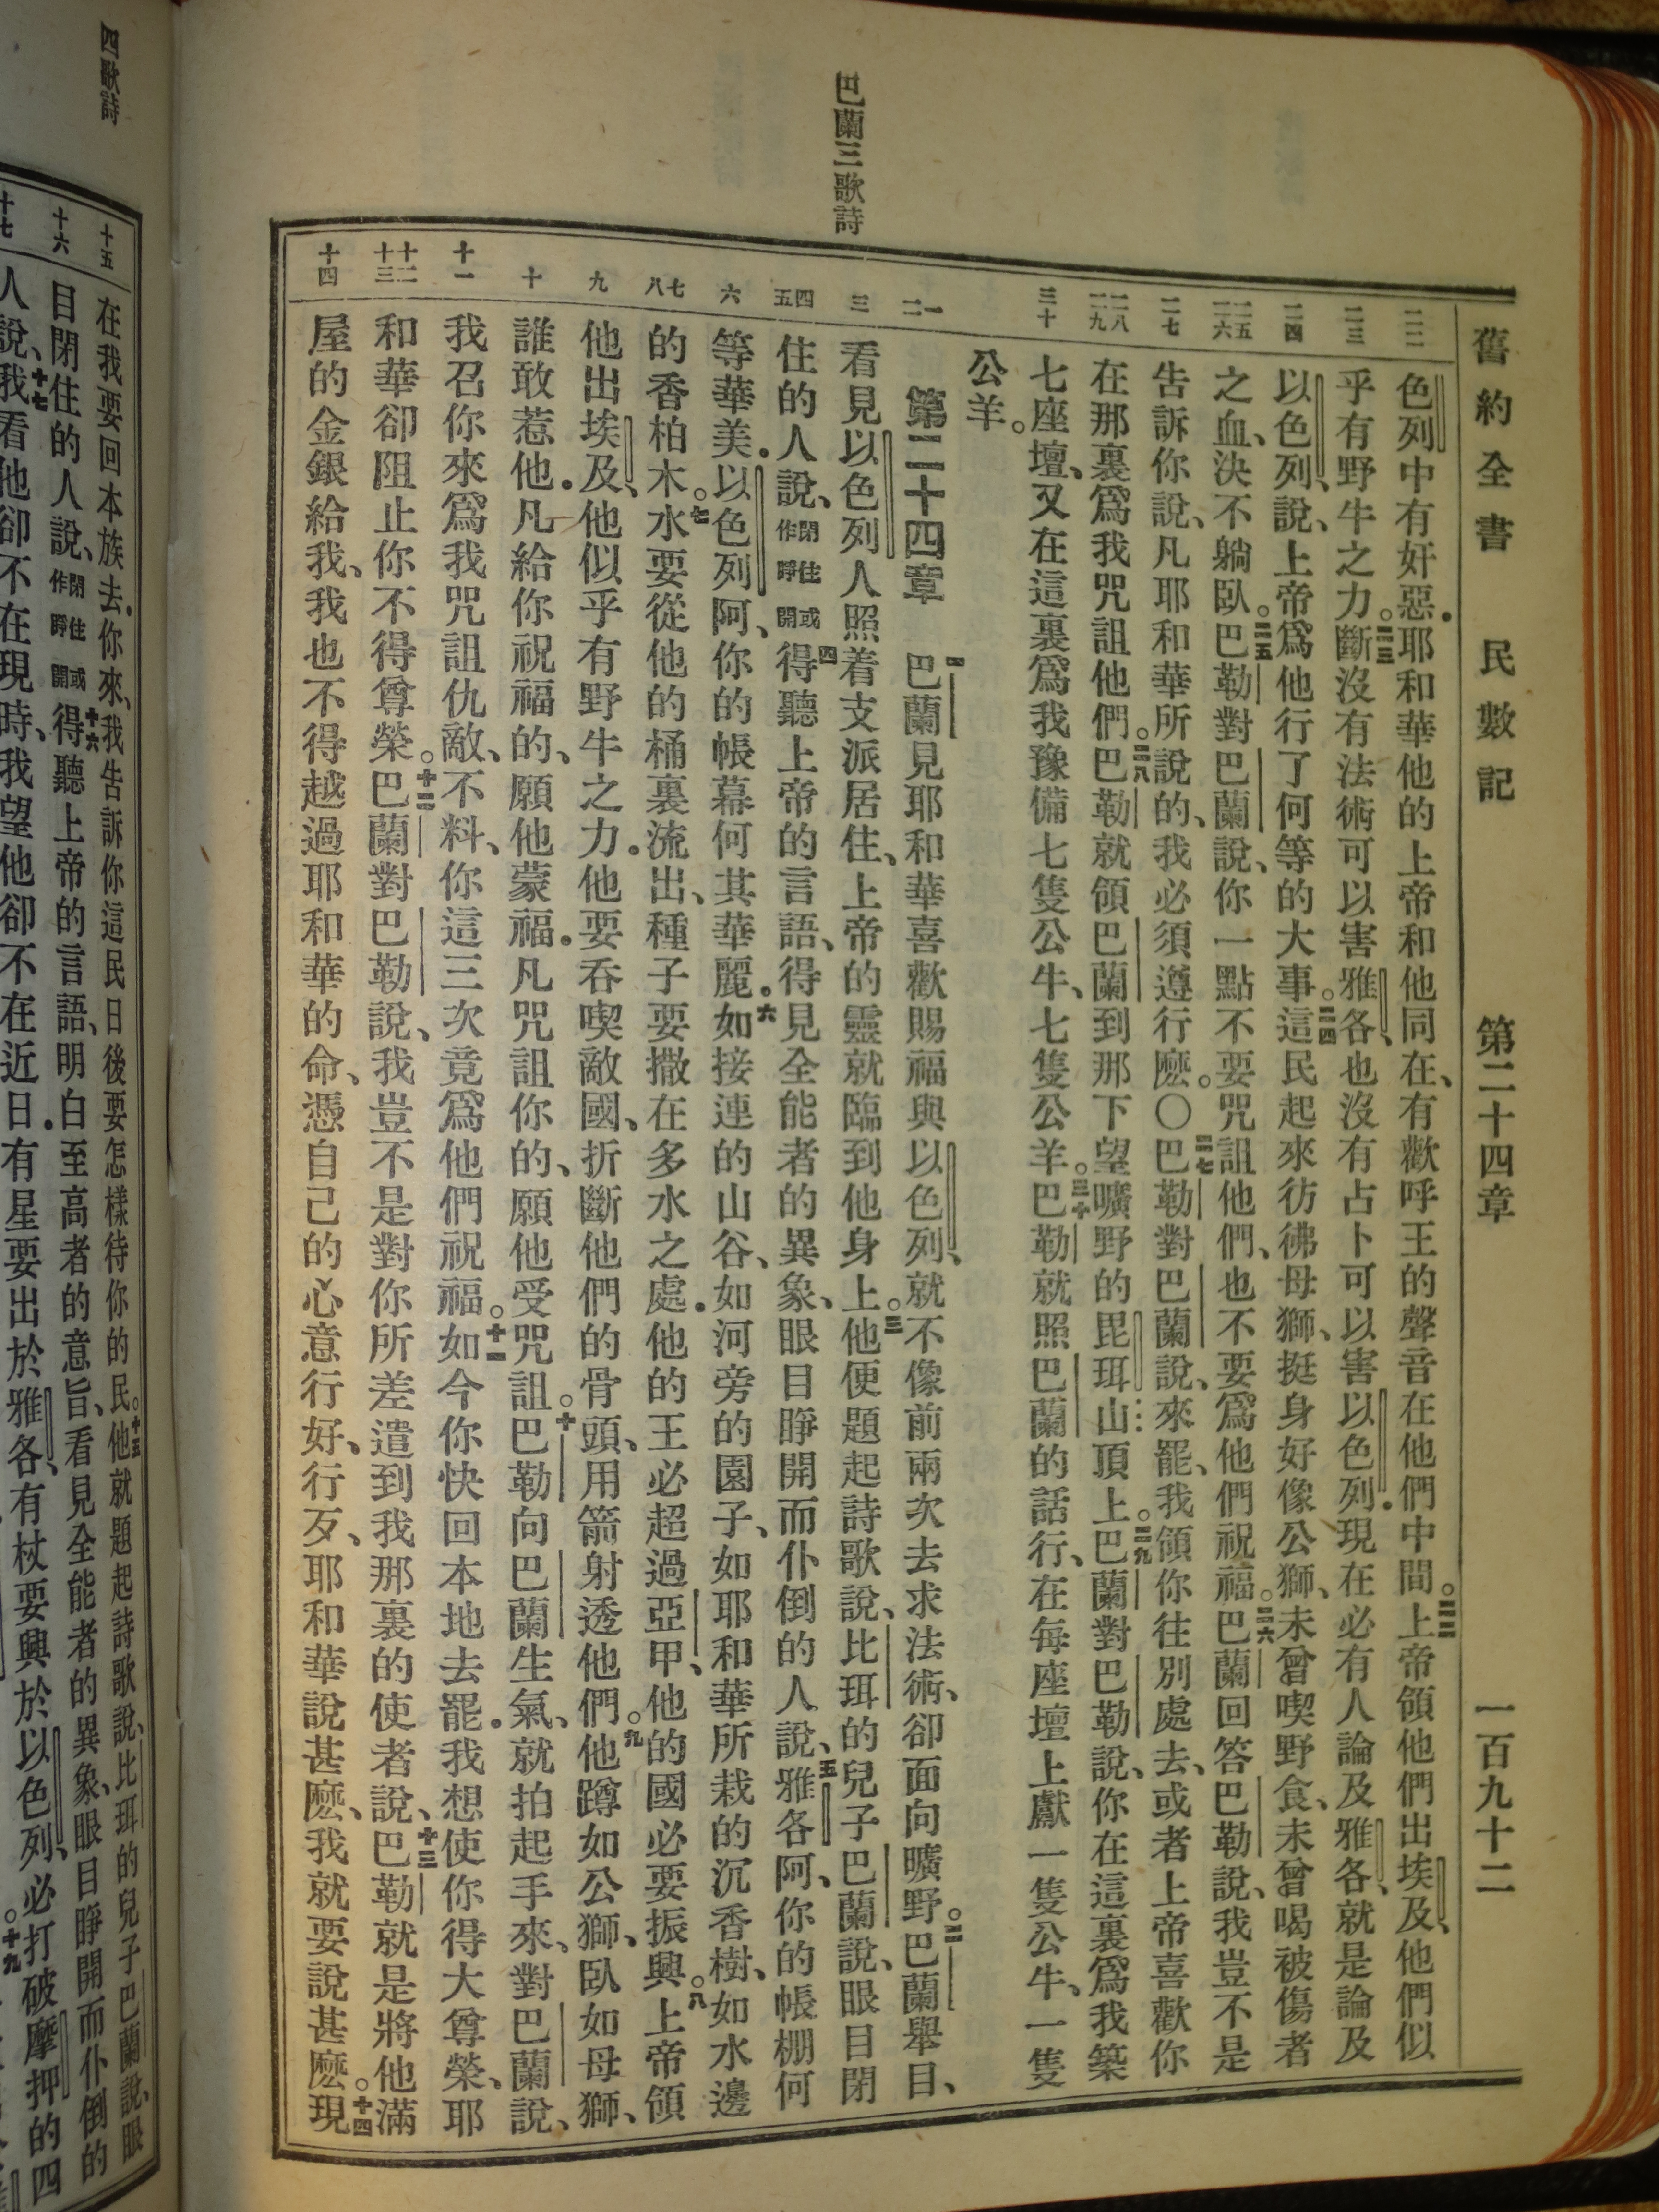 舊約全書 民數記 第二十四章 一百九十二
二二 二三 二四 二五 二六 二七 二八 二九 三十
色列中有奸惡．耶和華他的上帝和他同在、有歡呼王的聲音在他們中間。二二上帝領他們出埃及、他們似
乎有野牛之力。二三斷沒有法術可以害雅各、也沒有占卜可以害以色列．現在必有人論及雅各、就是論及
以色列、說、上帝爲他行了何等的大事。二四這民起來彷彿母獅、挺身好像公獅、未曾喫野食、未曾喝被傷者
之血、決不躺臥。二五巴勒對巴蘭說、你一點不要咒詛他們、也不要爲他們祝福。二六巴蘭回答巴勒說、我豈不是
告訴你說、凡耶和華所說的、我必須遵行麽。〇二七巴勒對巴蘭說、來罷、我領你往別處去、或者上帝喜歡你
在那裏爲我咒詛他們。二八巴勒就領巴蘭到那下望曠野的毘珥山頂上。二九巴蘭對巴勒說、你在這裏爲我築
七座壇、又在這裏爲我豫備七隻公牛、七隻公羊。三十巴勒就照巴蘭的話行、在每座壇上獻一隻公牛、一隻
公羊。
巴蘭三歌詩
一 二 三 四 五 六 七 八 九 十 十一 十二 十三 十四
第二十四章 一巴蘭見耶和華喜歡賜福與以色列、就不像前兩次去求法術、卻面向曠野。二巴蘭舉目、
看見以色列人照着支派居住、上帝的靈就臨到他身上。三他便題起詩歌說、比珥的兒子巴蘭說、眼目閉
住的人說、閉住或作睜開四得聽上帝的言語、得見全能者的異象、眼目睜開而仆倒的人說、五雅各阿、你的帳棚何
等華美．以色列阿、你的帳幕何其華麗．六如接連的山谷、如河旁的園子、如耶和華所栽的沉香樹、如水邊
的香柏木。七水要從他的桶裏流出、種子要撒在多水之處．他的王必超過亞甲、他的國必要振興。八上帝領
他出埃及、他似乎有野牛之力．他要吞喫敵國、折斷他們的骨頭、用箭射透他們。九他蹲如公獅、臥如母獅、
誰敢惹他．凡給你祝福的、願他蒙福．凡咒詛你的、願他受咒詛。十巴勒向巴蘭生氣、就拍起手來、對巴蘭說、
我召你來爲我咒詛仇敵、不料、你這三次竟爲他們祝福。十一如今你快回本地去罷．我想使你得大尊榮、耶
和華卻阻止你不得尊榮。十二巴蘭對巴勒說、我豈不是對你所差遣到我那裏的使者說、十三巴勒就是將他滿
屋的金銀給我、我也不得越過耶和華的命、憑自己的心意行好、行歹、耶和華說甚麽、我就要說甚麽。十四現
四歌詩
十五 十六 十七
在我要回本族去．你來、我告訴你這民日後要怎樣待你的民。十五他就題起詩歌說、比珥的兒子巴蘭說、眼
目閉住的人說、閉住或作睜開十六得聽上帝的言語、明白至高者的意旨、看見全能者的異象、眼目睜開而仆倒的
人說、十七我看他卻不在現時、我望他卻不在近日．有星要出於雅各、有杖要興於以色列、必打破摩押的四